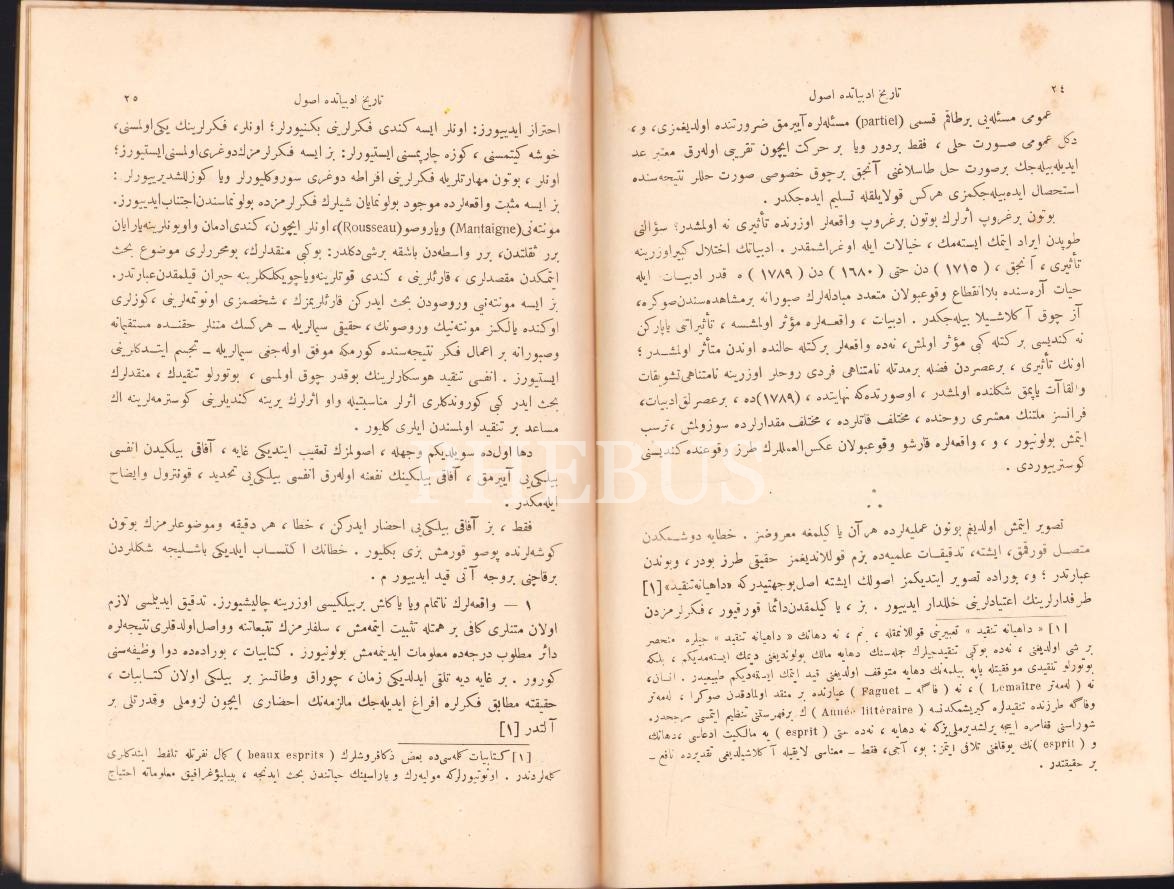 ٢٤
تاریخ ادبیاتده اصول
عمومی مسئله‌یی برطاقم قسمی (partiel) مسئله‌لره آییرمق ضرورتنده اولدیغمزی، و،
دکل عمومی صورت حلی ، فقط بردور ویا بر حرکت ایچون تقریبی اوله‌رق معتبر عد
ایدیله‌بیله‌جك برصورت حل طاسلاغنی آنجق برچوق خصوصی صورت حللر نتیجه‌سنده
استحصال ایده‌بیله‌جکمزی هرکس قولایلقله تسلیم ایده‌جکدر .
بوتون برغروپ اثرلرك بوتون برغروپ واقعه‌لر اوزرنده تأثیری نه اولمشدر؟ سؤالنی
طوپدن ایراد ایتمك ایسته‌مك ، خیالات ایله اوغراشمقدر . ادبیاتك اختلال کبیراوزرینه
تأثیری ، آنجق ، ( ١٧١٥ ) دن حتی ( ١٦٨٠ ) دن ( ١٧٨٩ ) ه قدر ادبیات ایله
حیات آره‌سنده بلاانقطاع وقوعبولان متعدد مبادله‌لرك صبورانه برمشاهده‌سندن‌صوکره،
آز چوق آکلاشیلا بیله‌جکدر . ادبیات ، واقعه‌لره مؤثر اولمشسه ، تأثیراتی یاپارکن
نه کندیسی برکتله کبی مؤثر اولمش، نه‌ده واقعه‌لر برکتله حالنده اوندن متأثر اولمشدر؛
اونك تأثیری ، برعصردن فضله برمدتله نامتناهی فردی روحلر اوزرینه نامتناهی تشویقات
والقاآت یاپمق شکلنده اولمشدر ، اوصورتده‌که نهایتنده ، (١٧٨٩)ده ، برعصرلق ادبیات،
فرانسز ملتنك معشری روحنده ، مختلف قاتلرده ، مختلف مقدارلرده سوزولمش ،ترسب
ایتمش بولونیور ، و ، واقعه‌لره قارشو وقوعبولان عکس‌العمللرك طرز وقوعنده کندیسنی
کوسترییوردی .
* * *
تصویر ایتمش اولدیغم بوتون عملیه‌لرده هرآن یا کیلمغه معروضز . خطایه دوشمکدن
متصل قورقمق، ایشته، تدقیقات علمیه‌ده بزم قوللاندیغمز حقیقی طرز بودر، وبوندن
عبارتدر ؛ و، بوراده تصویر ایتدیکمز اصولك ایشته اصل‌بوجهتیدرکه «داهیانه‌تنقید» [١]
طرفدارلرینك اعتیادلرینی خللدار ایدییور . بز ، یا کیلمقدن دائما قورقیور ، فکرلرمزدن
[١] « داهیانه تنقید » تعبیرینی قوللانمقله ، بنم ، نه دهانك « داهیانه تنقید » جیلره منحصر
بر شی اولدیغنی ، نه‌ده بوکبی تنقیدجیلرك جمله‌سنك دهایه مالك بولوندیغنی دیمك ایسته‌مدیکم ، بلکه
بوتورلو تنقیدی موفقیتله یاپه بیلمه‌نك دهایه متوقف اولدیغنی قید ایتمك ایسته‌دیکم طبیعیدر . انسان،
نه ( له‌مه‌تر Lemaître ) ، نه ( فاگه ـ Faguet ) عیارنده بر منقد اولمادقدن صوکرا ، له‌مه‌تر
وفاگه طرزنده تنقیدلره کیریشمکدنسه ( Année littéraire ) ك برفهرستنی تنظیم ایتمسی مرجحدر.
شوراسنی قفامزه اییجه یرلشدیرملی‌یزکه نه دهایه ، نه‌ده حتی ( esprit ) یه مالکیت ادعاسی ،دهانك
و ( esprit )نك یوقلغنی تلافی ایتمز: بو، آجی، فقط ـ معناسی لایقیله آکلاشیلدیغی تقدیرده نافع ـ
بر حقیقتدر .
٢٥
تاریخ ادبیاتده اصول
احتراز ایدییورز: اونلر ایسه کندی فکرلرینی بکنیورلر؛ اونلر ، فکرلرینك یکی‌اولمسنی،
خوشه کیتمسنی ، کوزه چارپمسنی ایستیورلر: بز ایسه فکرلرمزك‌دوغری‌اولمسنی‌ایستیورز؛
اونلر ، بوتون مهارتلریله فکرلرینی افراطه دوغری سوروکلیورلر ویا کوزللشدیرییورلر :
بز ایسه مثبت واقعه‌لرده موجود بولونمایان شیلرك فکرلرمزده بولونماسندن‌اجتناب‌ایدییورز.
مونته‌نی(Mantaigne) ویاروصو(Rousseau)، اونلر ایچون، کندی‌ادمان واویونلرینه‌یارایان
برر ثقلتدن، برر واسطه‌دن باشقه برشی‌دکلدر: بوکی منقدلرك، بومحررلری موضوع بحث
ایتمکدن مقصدلری ، قارئلرینی ، کندی قوتلرینه‌ویاچویکلکلرینه حیران قیلمقدن‌عبارتدر.
بز ایسه مونته‌نیی وروصودن بحث ایدرکن قارئلریمزك ، شخصمزی اونوتمه‌لرینی ،کوزلری
اوکنده یالکیز مونته‌نیك وروصونك ، حقیقی سیمالریله ـ هرکسك متنلر حقنده مستقیمانه
وصبورانه بر اعمال فکر نتیجه‌سنده کورمکه موفق اوله‌جغی سیمالریله ـ تجسم ایتدکلرینی
ایستیورز . انفسی تنقید هوسکارلرینك بوقدر چوق اولمسی ، بوتورلو تنقیدك ، منقدلرك
بحث ایدر کبی کوروندکلری اثرلر مناسبتیله واو اثرلرك یرینه کندیلرینی کوسترمه‌لرینه اك
مساعد بر تنقید اولمسندن ایلری کلیور .
دها اولده سویلدیکم وجهله ، اصولمزك تعقیب ایتدیکی غایه ، آفاقی بیلکیدن انفسی
بیلکی‌یی آییرمق ، آفاقی بیلکینك نفعنه اوله‌رق انفسی بیلکی‌یی تحدید ، قونترول وایضاح
ایله‌مکدر .
فقط ، بز آفاقی بیلکی‌یی احضار ایدرکن ، خطا ، هر دقیقه وموضوعلرمزك بوتون
کوشه‌لرنده پوصو قورمش بزی بکلیور . خطانك اکتساب ایلدیکی باشلیجه شکللردن
برقاچنی بروجه آتی قید ایدییور م .
١ — واقعه‌لرك ناتمام ویا یاکلش بربیلکیسی اوزرینه چالیشیورز. تدقیق ایدیلمسی لازم
اولان متنلری کافی بر همتله تثبیت ایتمه‌مش ، سلفلرمزك تتبعاتنه وواصل‌اولدقلری‌نتیجه‌لره
دائر مطلوب درجه‌ده معلومات ایدینمه‌مش بولونیورز . کتابیات ، بوراده‌ده دوا وظیفه‌سنی
کورور . بر غایه دیه تلقی ایدلدیکی زمان ، چوراق وطاتسز بر بیلکی اولان کتابیات ،
حقیقته مطابق فکرلره افراغ ایدیله‌جك مالزمه‌نك احضاری ایچون لزوملی وقدرتلی بر
آلتدر [١]
[١] کتابیات کله‌سی‌ده بعض ذکافروشلرك ( beaux esprits ) کمال نفرتله تلفظ ایتدکلری
کله‌لردندر . اونوتیورلرکه مولیه‌رك و یاراسینك حیاتندن بحث ایدنجه ، بیبلیوغرافیق معلوماته احتیاج